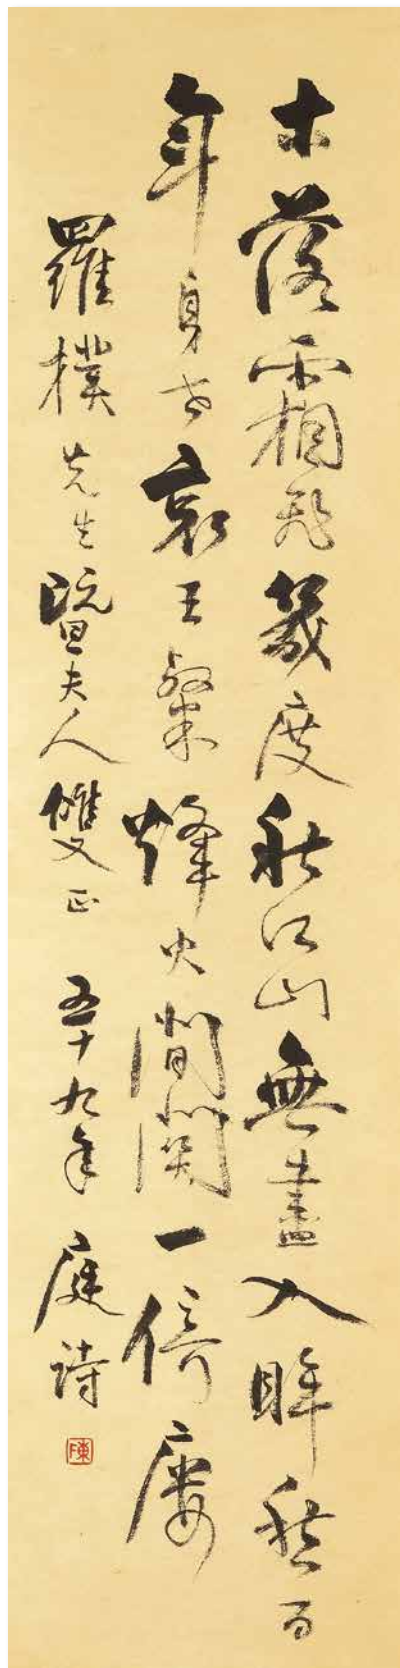 木落霜飛幾度秋江山無盡入眸愁百
年身世哀王粲烽火間關一倚廔
羅樸先生暨夫人雙正 五十九年 庭詩
陳